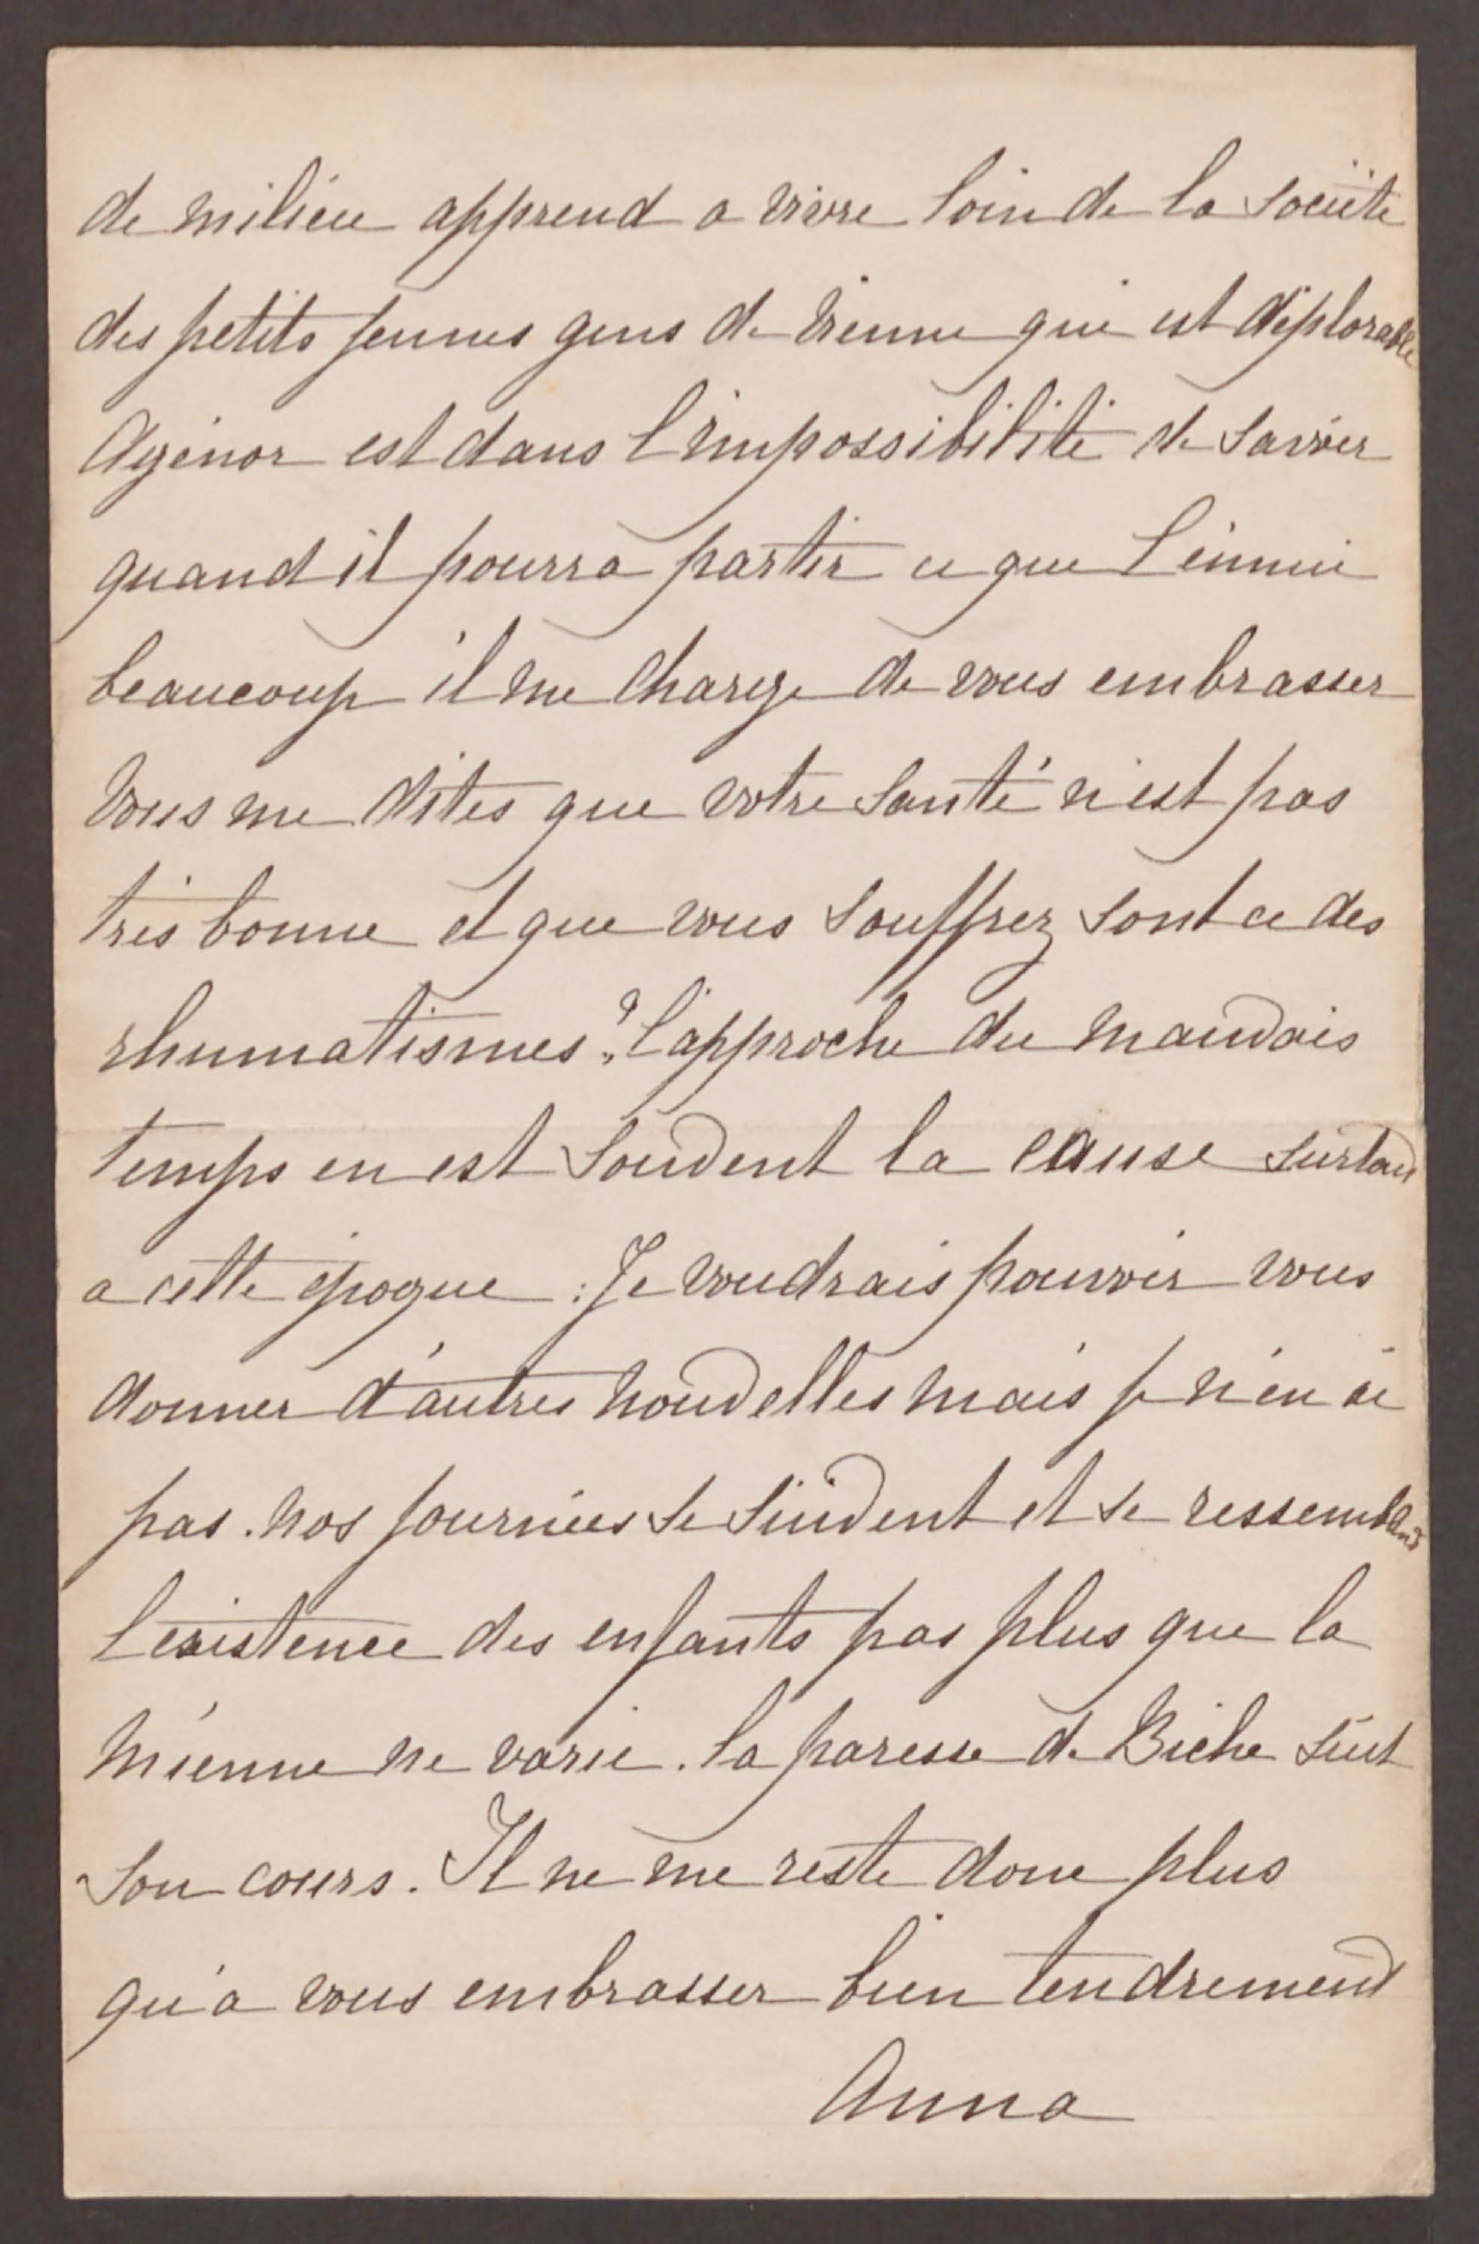 de milieu apprend a vivre loin de la Société
des petits jeunes gens de Vienne qui est déplorable
Agénor est dans l'impossibilité de Savoir
quand il pourra partir ce que l'ennui
beaucoup il me charge de vous embrasser
Vous me dites que votre Santé n'est pas
très bonne et que vous Souffrez Sont ce des
rhumatismes ? l'approche du mauvais
temps en est Souvent la cause Surtout
a cette époque . Je voudrais pouvoir vous
donner d'autres nouvelles mais je n'en ai
pas . nos journées Se Suivent et Se ressemblent
l'existence des enfants pas plus que la
mienne ne varie . la paresse de Biche Suit
Son cours . Il ne me reste donc plus
qu'a vous embrasser bien tendrement
Anna